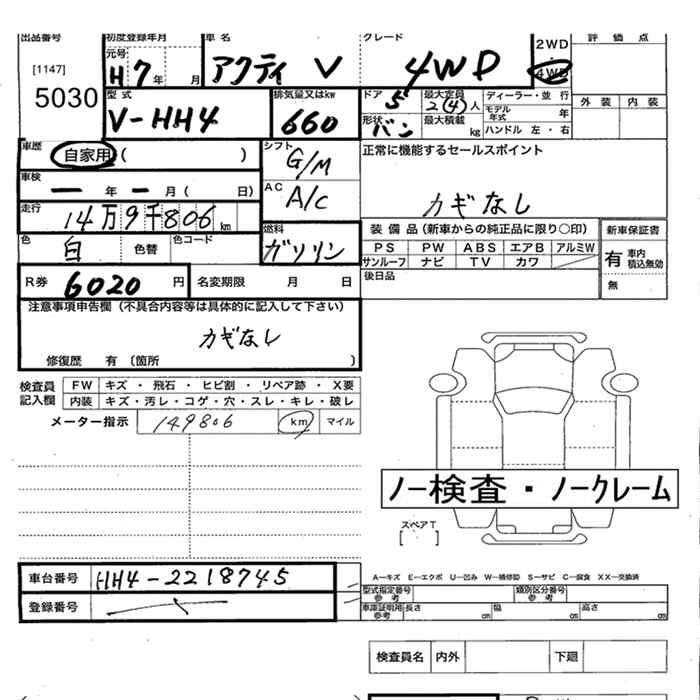 出品番号 初度登録年月 車名 グレード 評価点
元号 H7年 月 アクティ V 4WD 2WD ・ 4WD
[1147]
5030
型式 排気量又はkw ドア 5 最大定員 2(4)人 ディーラー・並行 外装 内装
V-HH4 660 形状 バン 最大積載 kg モデル年式 年
ハンドル 左・右
車歴 自家用 ( ) シフト G/M 正常に機能するセールスポイント
車検 一年一月(日) AC A/C カギなし
走行 14万9千806km 燃料 ガソリン 装備品(新車からの純正品に限り○印) 新車保証書
色 白 色替 色コード PS PW ABS エアB アルミW 有 車内積込無効
サンルーフ ナビ TV カワ
R券 6020円 名変期限 月 日 後日品 無
注意事項申告欄(不具合内容等は具体的に記入して下さい)
カギなし
修復歴 有(箇所 )
検査員記入欄 FW キズ・飛石・ヒビ割・リペア跡・X要
内装 キズ・汚レ・コゲ・穴・スレ・キレ・破レ
メーター指示 149806 km マイル
ノー検査・ノークレーム
スペアT
[ ]
車台番号 HH4-2218745 A―キズ E―エクボ U―凹み W―補修跡 S―サビ C―腐食 XX―交換済
登録番号 型式指定番号 参考 類別区分番号 参考
車庫証明用 参考 長さ cm 幅 cm 高さ cm
検査員名 内外 下廻